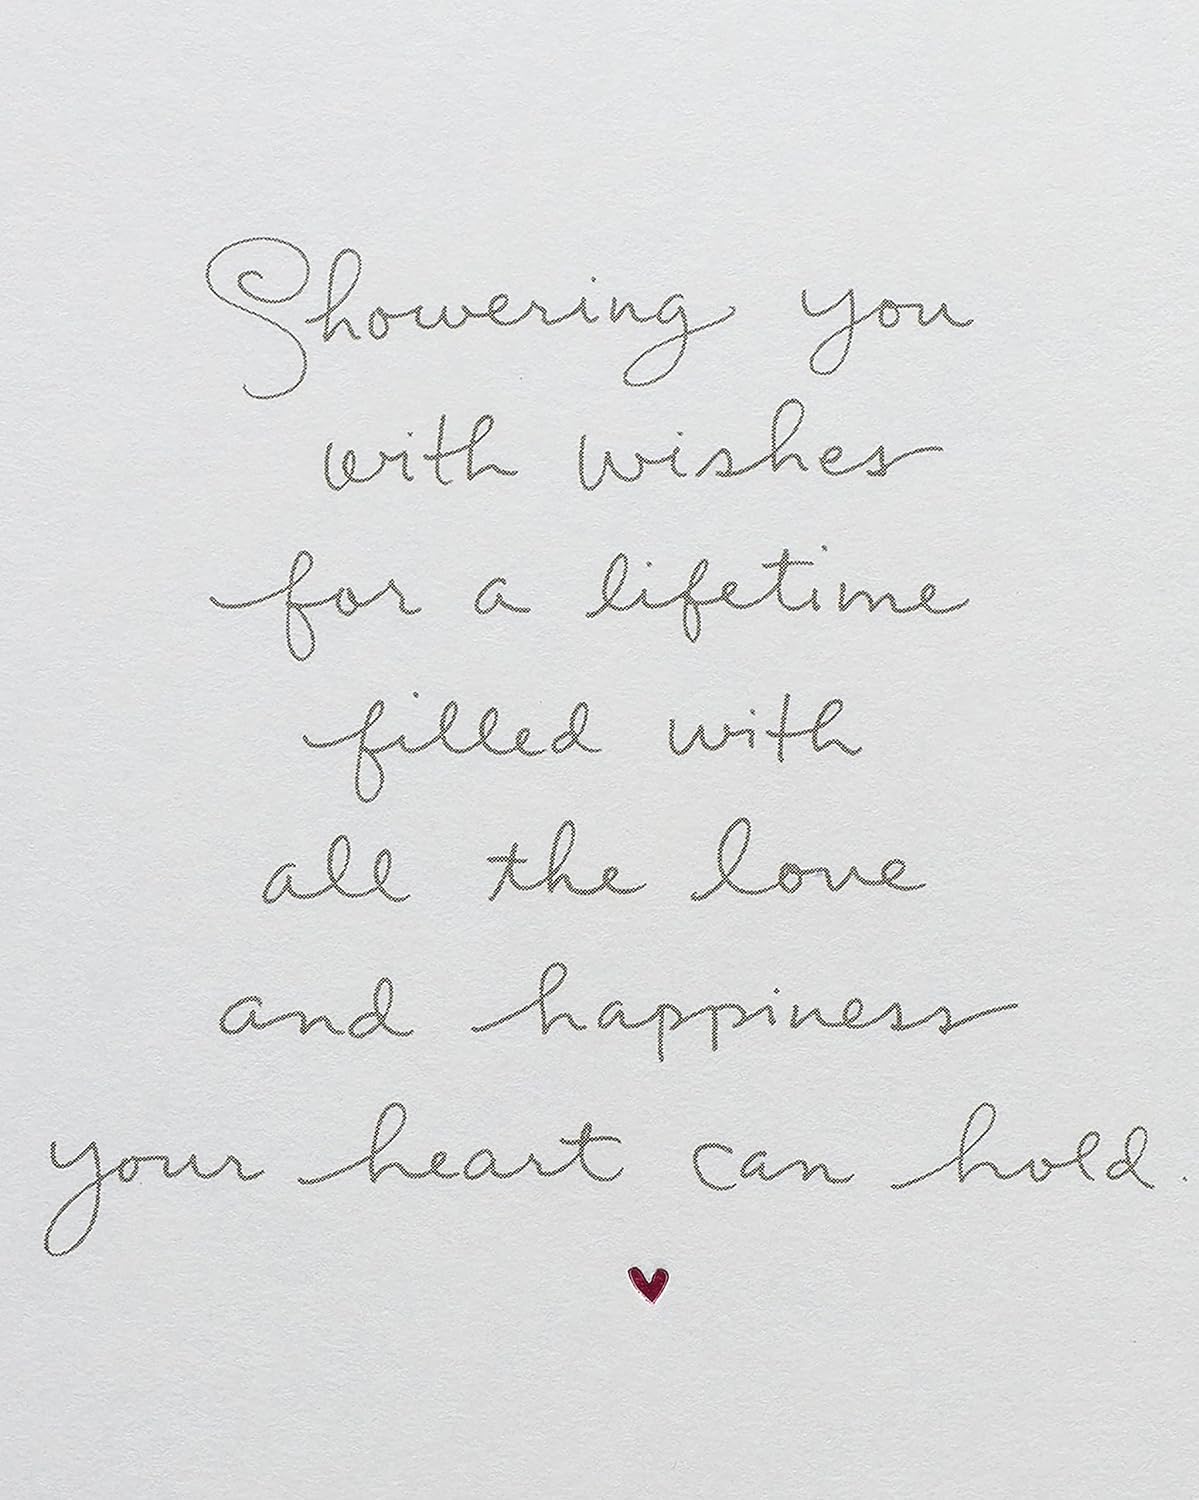 Showering you
with wishes
for a lifetime
filled with
all the love
and happiness
your heart can hold.